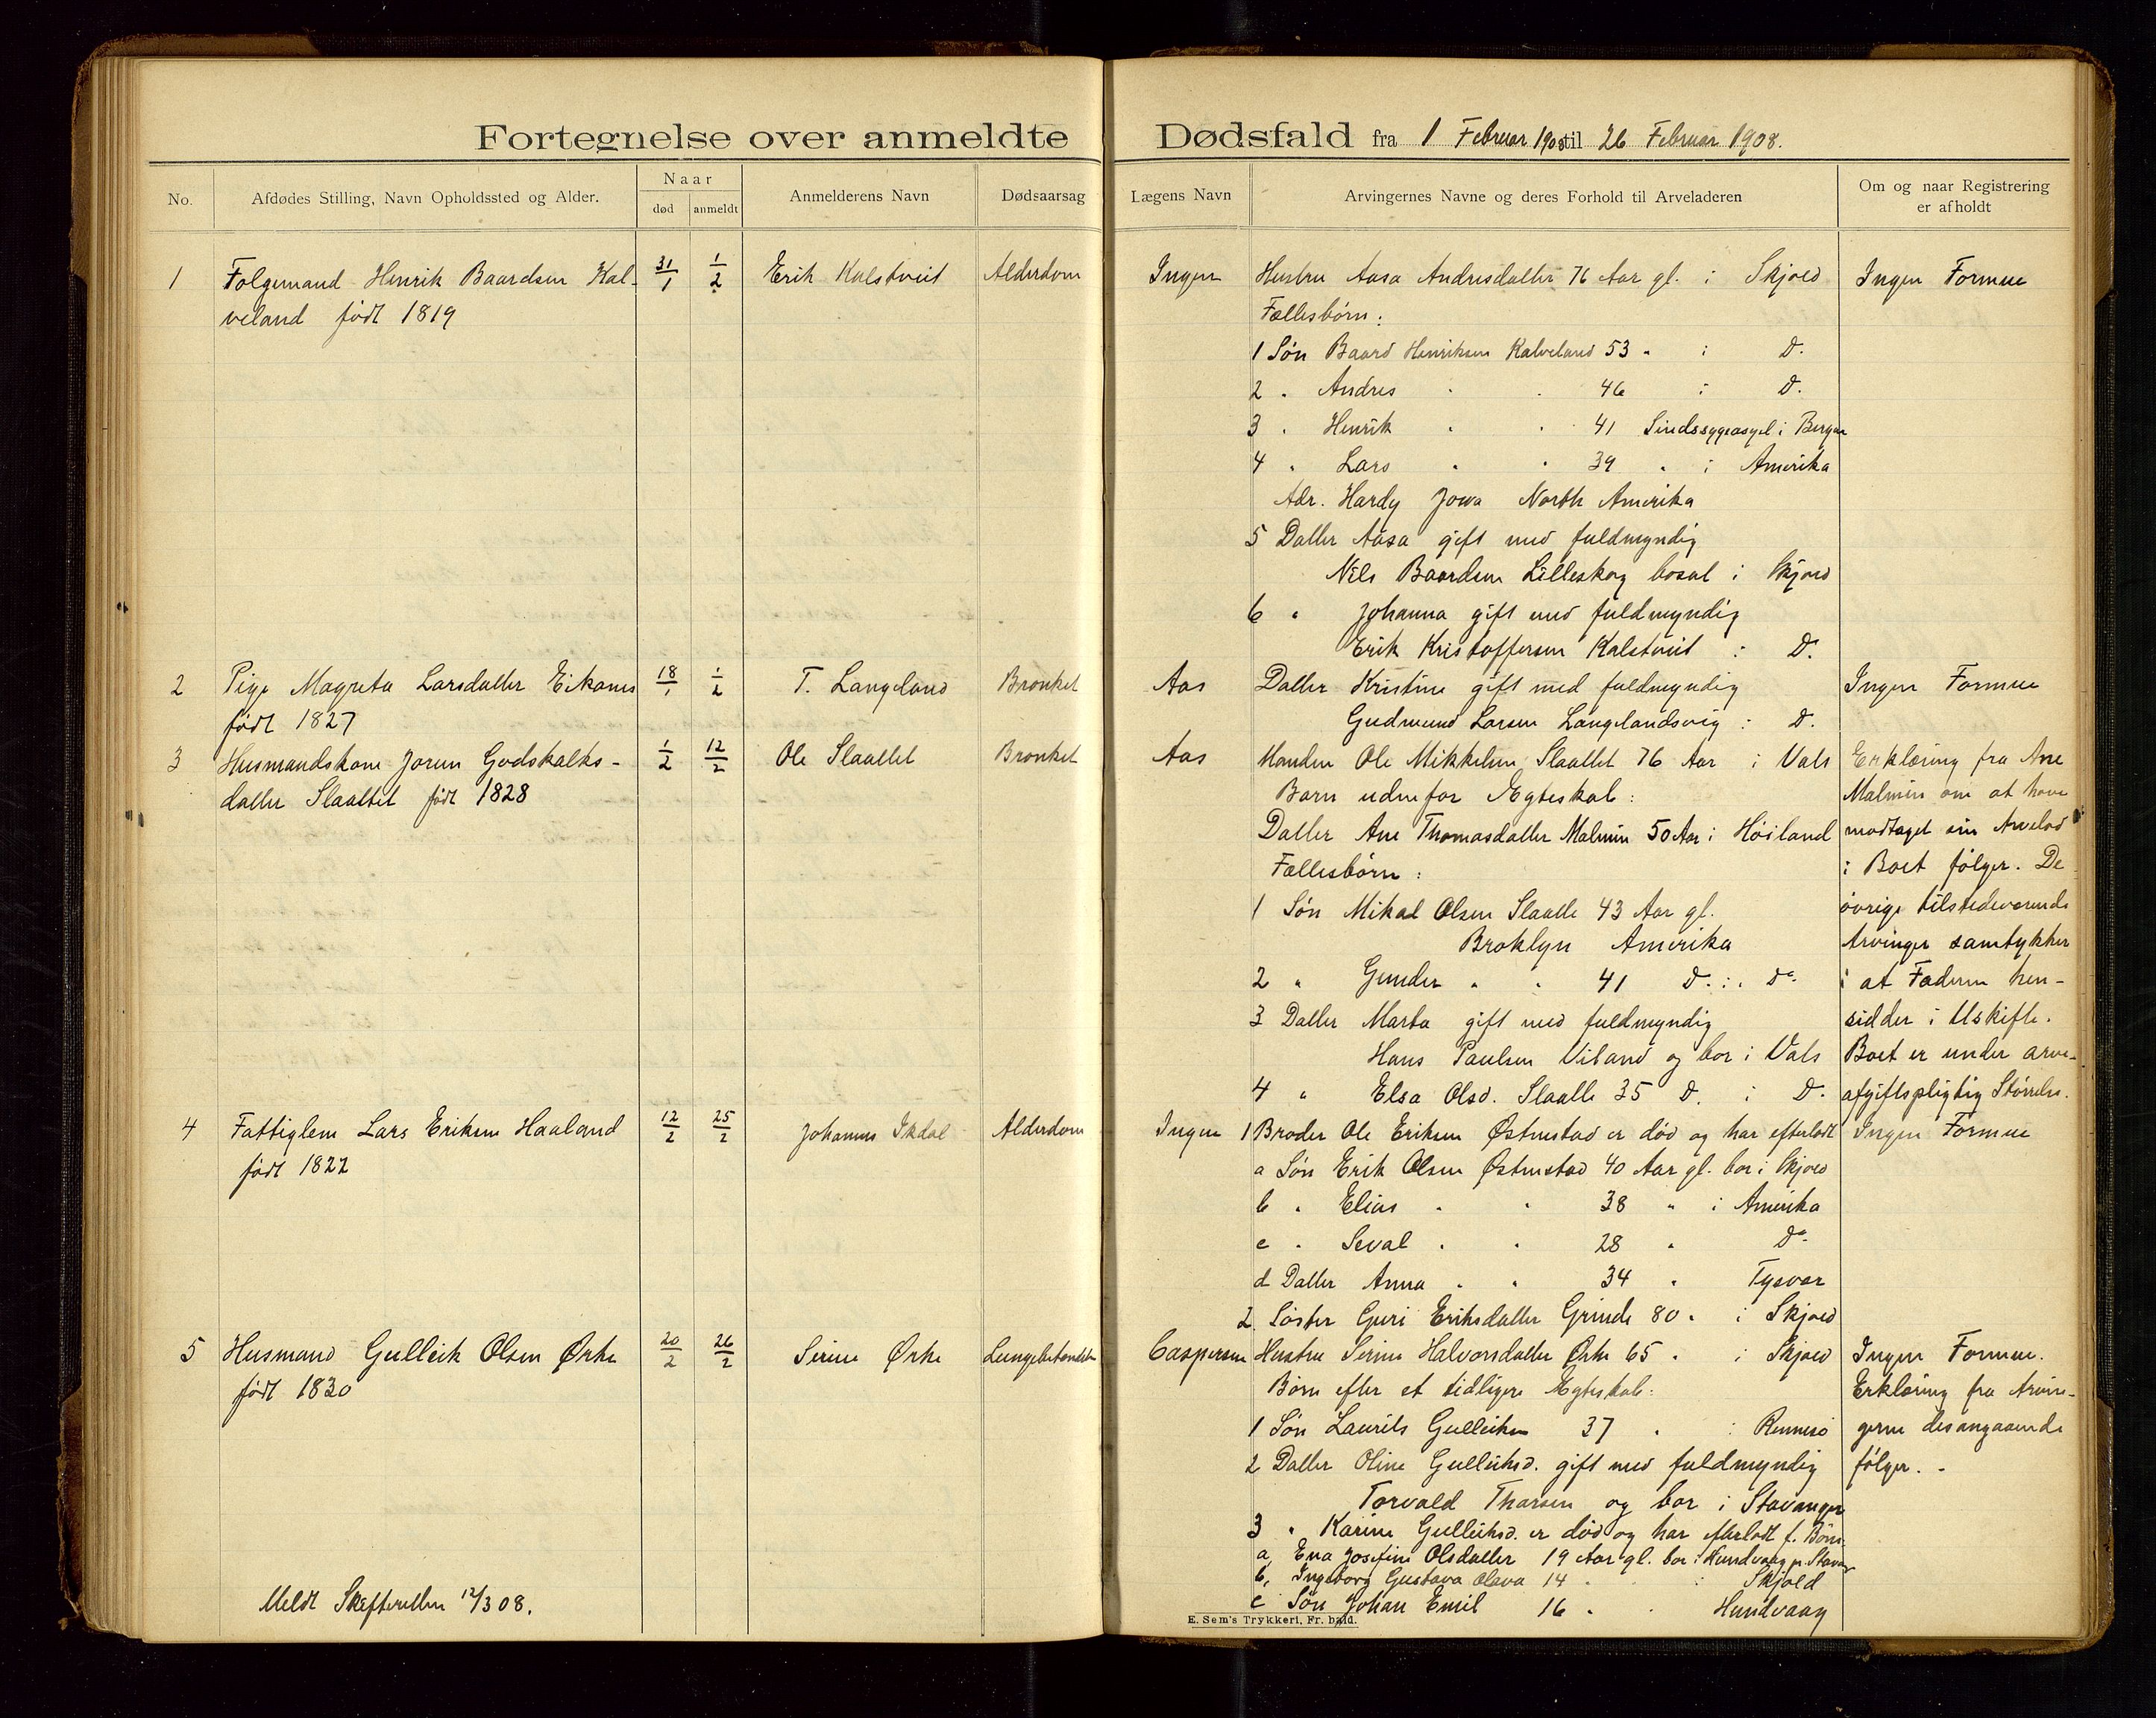 Fortegnelse over anmeldte Dødsfald fra 1 Februar 1908 til 26 Februar 1908.
No. Afdødes Stilling, Navn Opholdssted og Alder. Naar død anmeldt Anmelderens Navn Dødsaarsag Lægens Navn Arvingernes Navne og deres Forhold til Arveladeren Om og naar Registrering er afholdt
1 Folgemand Henrik Baardsen Kal- 31/1 1/2 Erik Kalstveit Alderdom
veland født 1819
2 Pige Magreta Larsdatter Eikanes 18/1 1/2 T. Langeland Bronket
født 1827
3 Husmandskone Jorun Godskalks- 1/2 12/2 Ole Slaattet Bronket
datter Slaattet født 1828
4 Fattiglem Lars Eriksen Haaland 12/2 25/2 Johannes Ikdal Alderdom
født 1822
5 Husmand Gulleik Olsen Ørke 20/2 26/2 Serine Ørke Lungebetændelse
født 1830
Meldt Skifteretten 12/3 08.
Ingen Hustru Aasa Andresdatter 76 Aar gl. i Skjold Ingen Formue
Fællesbørn:
1 Søn Baard Henriksen Kalveland 53 " i D.
2 " Andres " " 46 i D.
3 " Henrik " " 41 Sindssygeasyl i Bergen
4 " Lars " " 39 " i Amerika
Adr. Hardy Jowa North Amerika
5 Datter Aasa gift med fuldmyndig
Nils Baardsen Lilleskog bosat i Skjold
6 " Johanna gift med fuldmyndig
Erik Kristoffersen Kalstveit i D.
Aas Datter Kristine gift med fuldmyndig Ingen Formue
Gudmund Larsen Langelandsvig i D.
Aas Manden Ole Mikkelsen Slaattet 76 Aar i Vats Erklæring fra Ane
Barn udenfor Ægteskab: Malmin om at have
Datter Ane Thomasdatter Malmin 50 Aar i Høiland modtaget sin Arvelod
Fællesbørn: i Boet følger. De
1 Søn Mikal Olsen Slaatte 43 Aar gl. øvrige tilstedeværende
Broklyn Amerika Arvinger samtykker
2 " Gunder " " 41 D. i D. i at Faderen hen-
3 Datter Marta gift med fuldmyndig sidder i Uskifte.
Hans Paulsen Viland og bor i Vats Boet er under arve-
4 " Elsa Olsd. Slaatte 35 D. i D. afgiftspligtig Størrelse.
Ingen 1 Broder Ole Eriksen Østenstad er død og har efterladt Ingen Formue
a Søn Erik Olsen Østenstad 40 Aar gl. bor i Skjold
b " Elias " " 38 " i Amerika
c " Seval " " 28 " D.
d Datter Anna " " 34 " Tysvær
2. Søster Guri Eriksdatter Grinde 80 " i Skjold
Caspersen Hustru Serine Halvorsdatter Ørke 65 " i Skjold Ingen Formue.
Børn efter et tidligere Ægteskab: Erklæring fra Arvin-
1 Søn Laurits Gulleiksen 37 " i Rennesø gerne desangaaende
2 Datter Oline Gulleiksd. gift med fuldmyndig følger. -
Torvald Tharsen og bor i Stavanger
3 " Karine Gulleiksd. er død og har efterladt f. Børn:
a, Ena Josefine Olsdatter 19 Aar gl. bor i Hundvaag p. Stavan
b, Ingeborg Gustava Olava 14 " i Skjold
c Søn Johan Emil 16 " " Hundvaag
E. Sem's Trykkeri, Fr. hald.